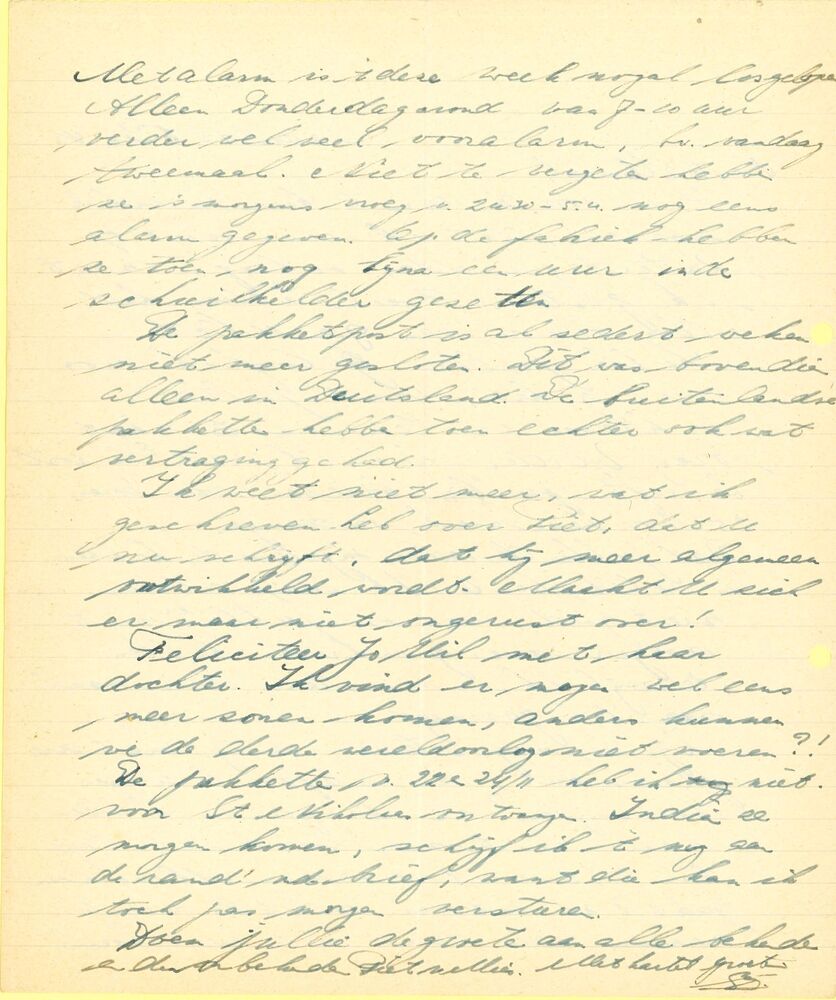 Met alarm is 't deze week nogal losgelopen
Alleen Donderdagavond van 7-10 uur
verder wel veel vooralarm, bv. vandaag
tweemaal. Niet te vergeten hebben
ze 's morgens vroeg v. 2u30 - 5.u. nog eens
alarm gegeven. Op de fabriek hebben
ze toen nog bijna een uur in de
schuilkelder gezeten
De pakketpost is al sedert weken
niet meer gesloten. Dit was bovendien
alleen in Duitsland. De buitenlandse
pakketten hebben toen echter ook wat
vertraging gehad.
Ik weet niet meer, wat ik
geschreven heb over Piet, dat U
nu schrijft, dat hij meer algemeen
ontwikkeld wordt. Maakt U zich
er maar niet ongerust over!
Feliciteer Jo Mil met haar
dochter. Ik vind er mogen wel eens
meer zonen komen, anders kunnen
we de derde wereldoorlog niet voeren?!
De pakketten v. 22 e 24/11 heb ik niet
voor St. Nikolaas ontvangen. Indien ze
morgen komen, schrijf ik 't nog aan
de rand v d brief, want die kan ik
toch pas morgen versturen.
Doen jullie de groeten aan alle bekende
en onbekende Met hartel groeten